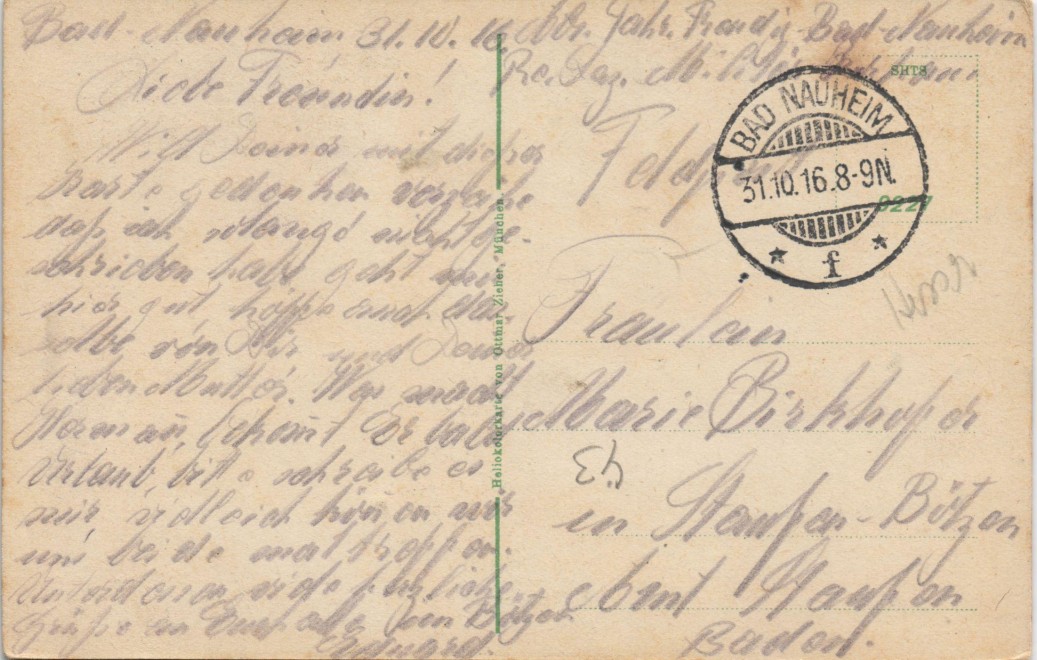 Bad-Nauheim 31.10.16.
Liebe Freundin!
Will Deiner mit dieser
Karte gedenken verzeihe
daß ich solange nicht ge-
schrieben habe geht mir
hier gut hoffe auch das-
selbe von Dir und Deiner
lieben Mutter. Was macht
Herman, kommt Er bald
Urlaub, bitte schreibe es
mir vielleich können wir
uns beide mal treffen.
Unterdessen viele herzliche
Grüße an Euch alle von Bötzen
Eduard.
Abs. Frendig Bad-Nauheim
Re. Laz. Militär
Heliokolorkarte von Ottmar Zieher, München.
SHTS
BAD NAUHEIM
31.10.16.8-9N.
* f *
Feldpost
Fraulein
Marie Birkhofer
43
in Staufen-Bötzen
Amt Staufen
Baden.